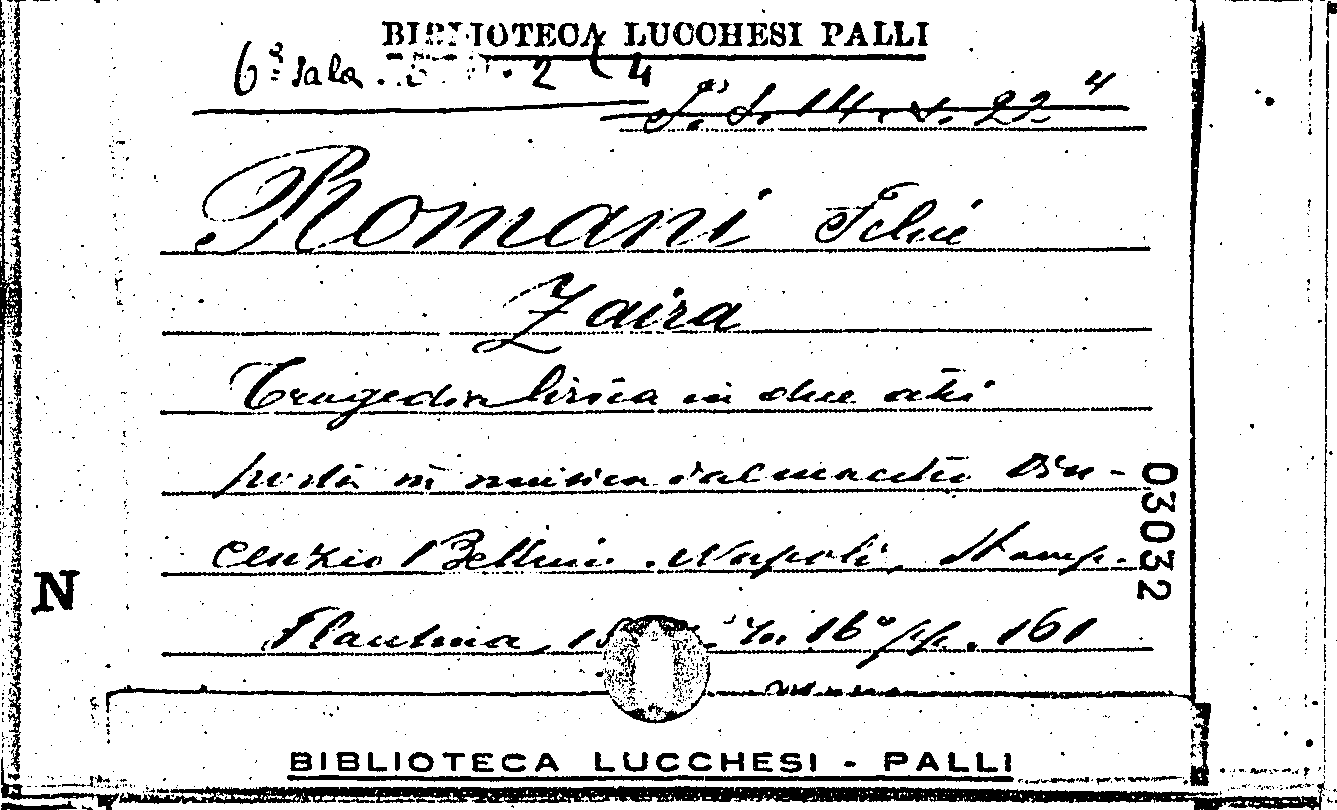 BIBLIOTECA LUCCHESI PALLI
6ª Sala. 2 4
S. 14. s. 22. 4
Romani Felice
Zaira
Tragedia lirica in due atti
posta in musica dal maestro Vin-
cenzio Bellini. Napoli, Stamp.
Flautina, In 16° pp. 161
03032
N
BIBLIOTECA LUCCHESI - PALLI